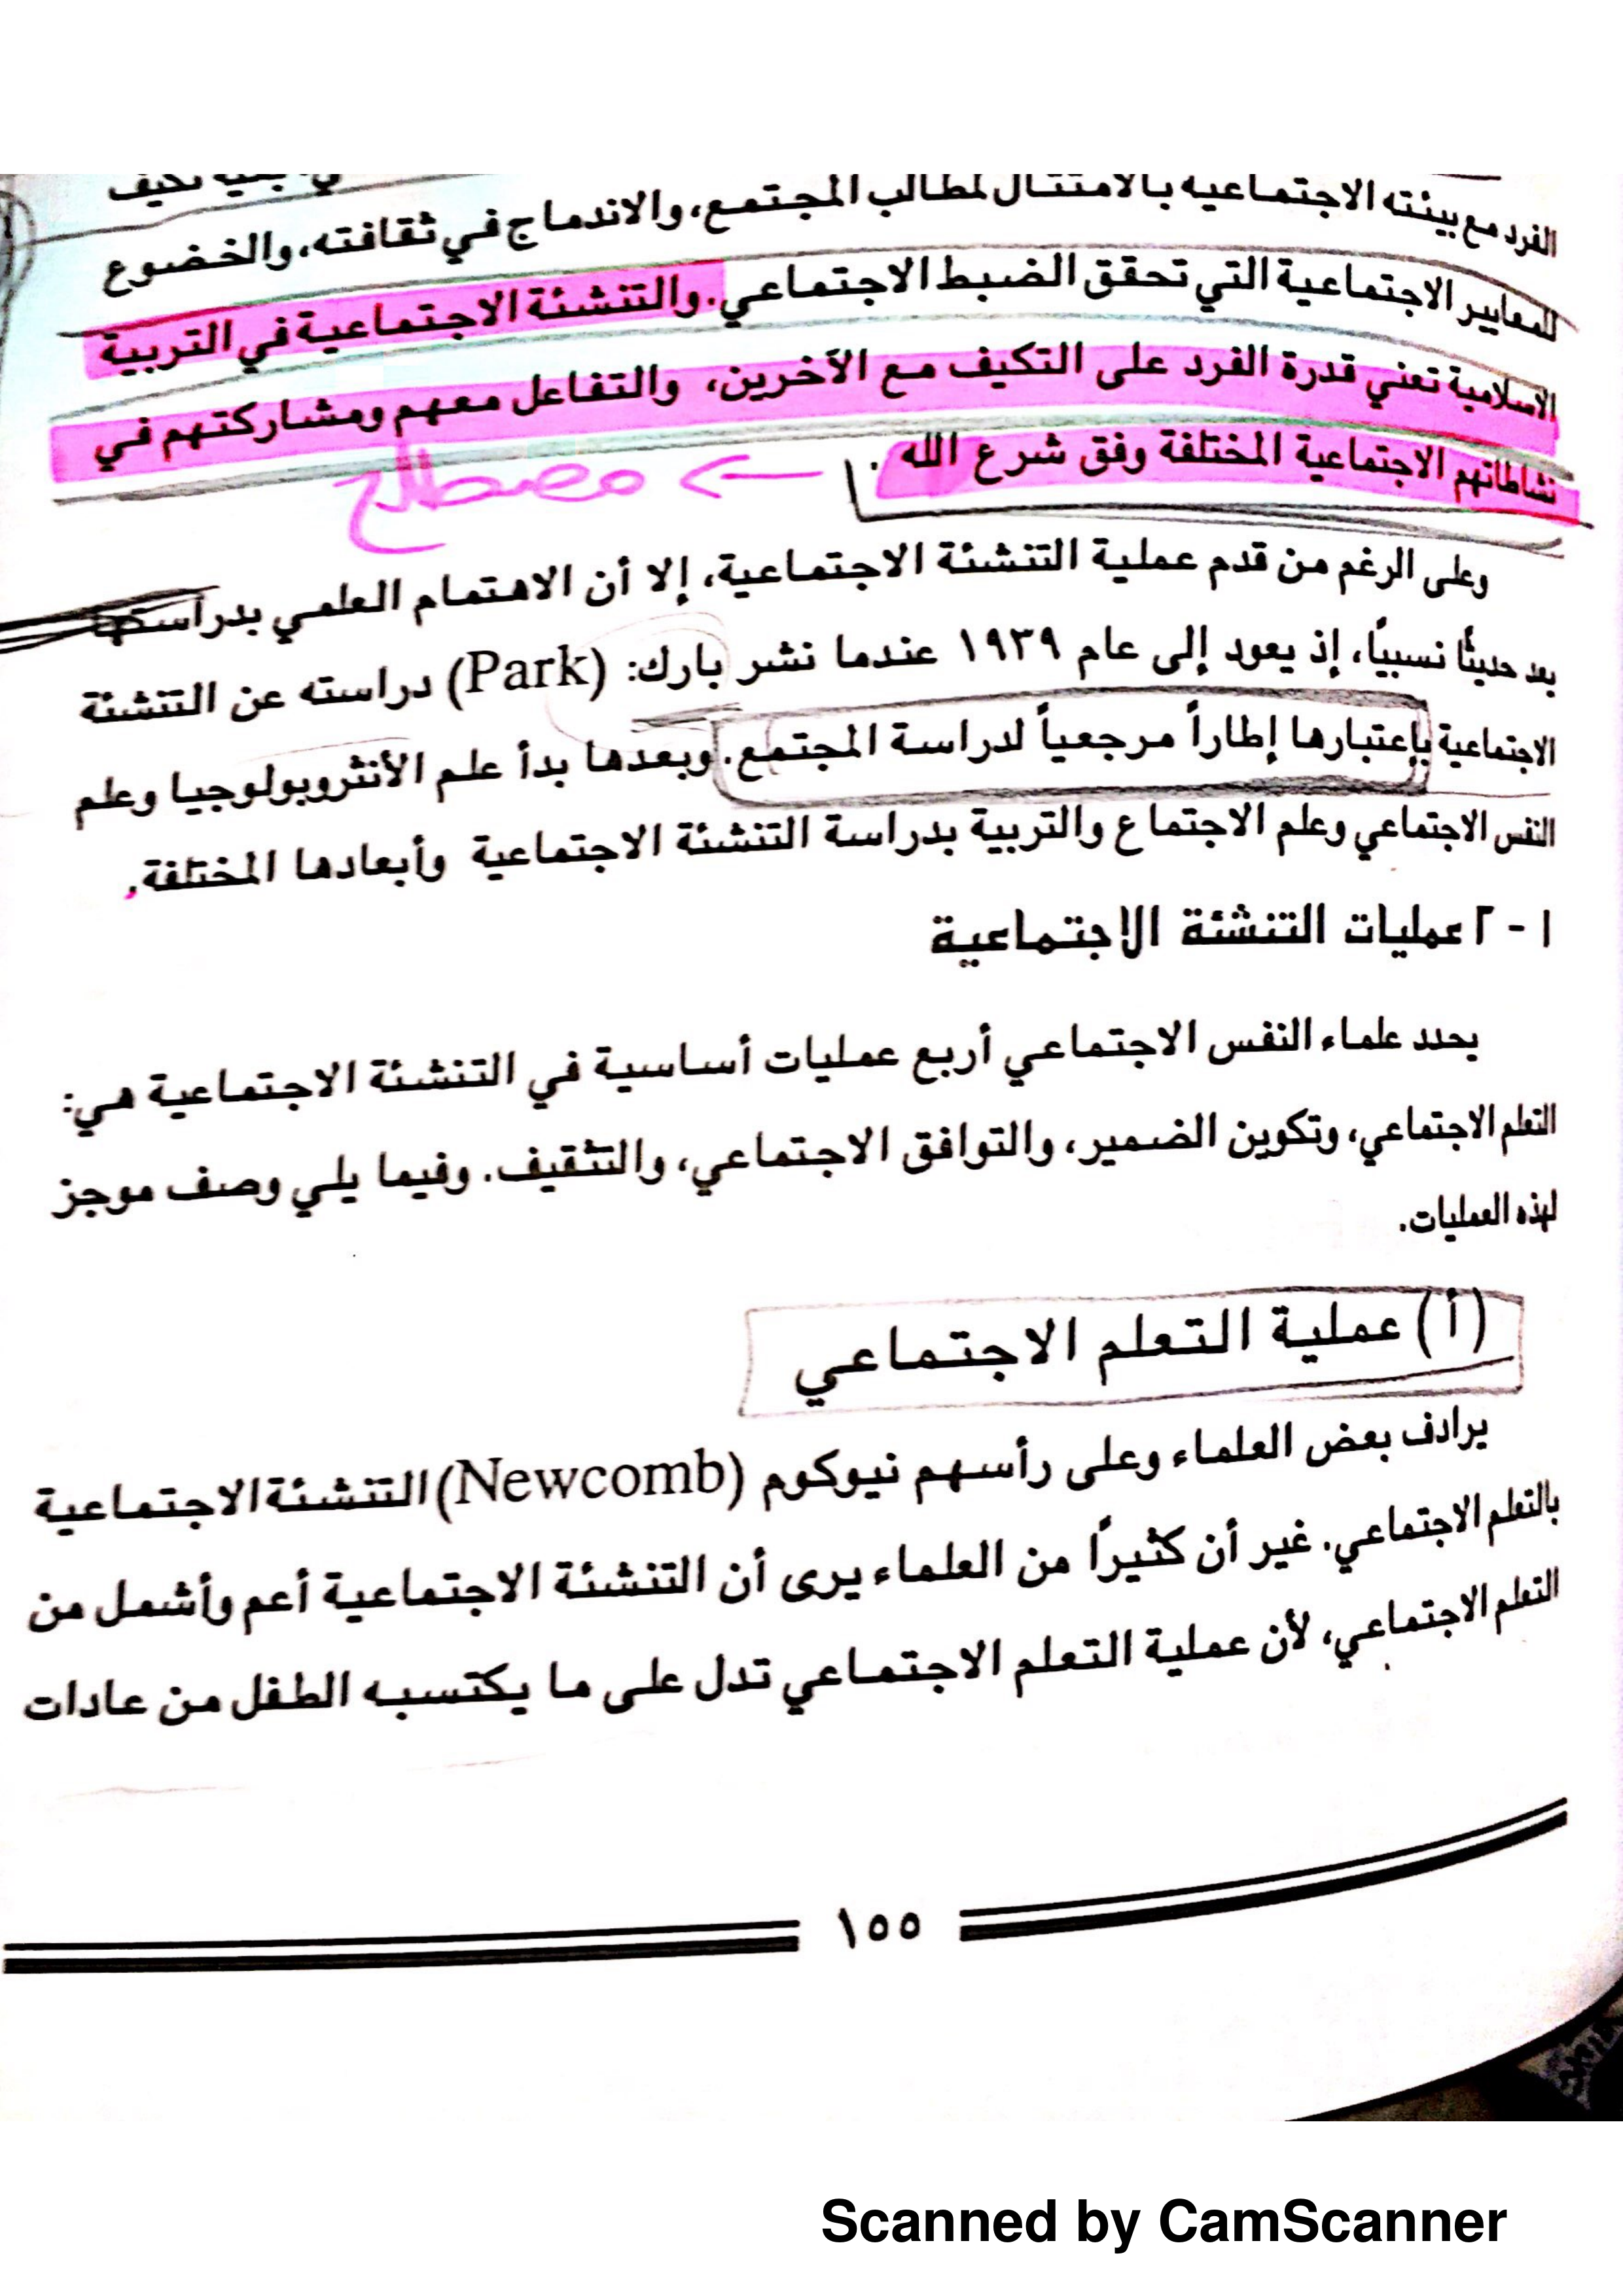 تكيف
الفرد مع بيئته الاجتماعية بالامتثال لمطالب المجتمع، والاندماج في ثقافته، والخضوع
للمعايير الاجتماعية التي تحقق الضبط الاجتماعي. والتنشئة الاجتماعية في التربية
الاسلامية تعني قدرة الفرد على التكيف مع الآخرين، والتفاعل معهم ومشاركتهم في
نشاطاتهم الاجتماعية المختلفة وفق شرع الله .
← مصطلح
وعلى الرغم من قدم عملية التنشئة الاجتماعية، إلا أن الاهتمام العلمي بدراستها
يعد حديثًا نسبيًا، إذ يعود إلى عام ١٩٣٩ عندما نشر بارك: (Park) دراسته عن التنشئة
الاجتماعية بإعتبارها إطاراً مرجعياً لدراسة المجتمع. وبعدها بدأ علم الأنثروبولوجيا وعلم
النفس الاجتماعي وعلم الاجتماع والتربية بدراسة التنشئة الاجتماعية وأبعادها المختلفة.
١ - ٢ عمليات التنشئة الاجتماعية
يحدد علماء النفس الاجتماعي أربع عمليات أساسية في التنشئة الاجتماعية هي:
التعلم الاجتماعي، وتكوين الضمير، والتوافق الاجتماعي، والتثقيف. وفيما يلي وصف موجز
لهذه العمليات.
(أ) عملية التعلم الاجتماعي
يرادف بعض العلماء وعلى رأسهم نيوكوم (Newcomb) التنشئة الاجتماعية
بالتعلم الاجتماعي. غير أن كثيراً من العلماء يرى أن التنشئة الاجتماعية أعم وأشمل من
التعلم الاجتماعي، لأن عملية التعلم الاجتماعي تدل على ما يكتسبه الطفل من عادات
١٥٥
Scanned by CamScanner